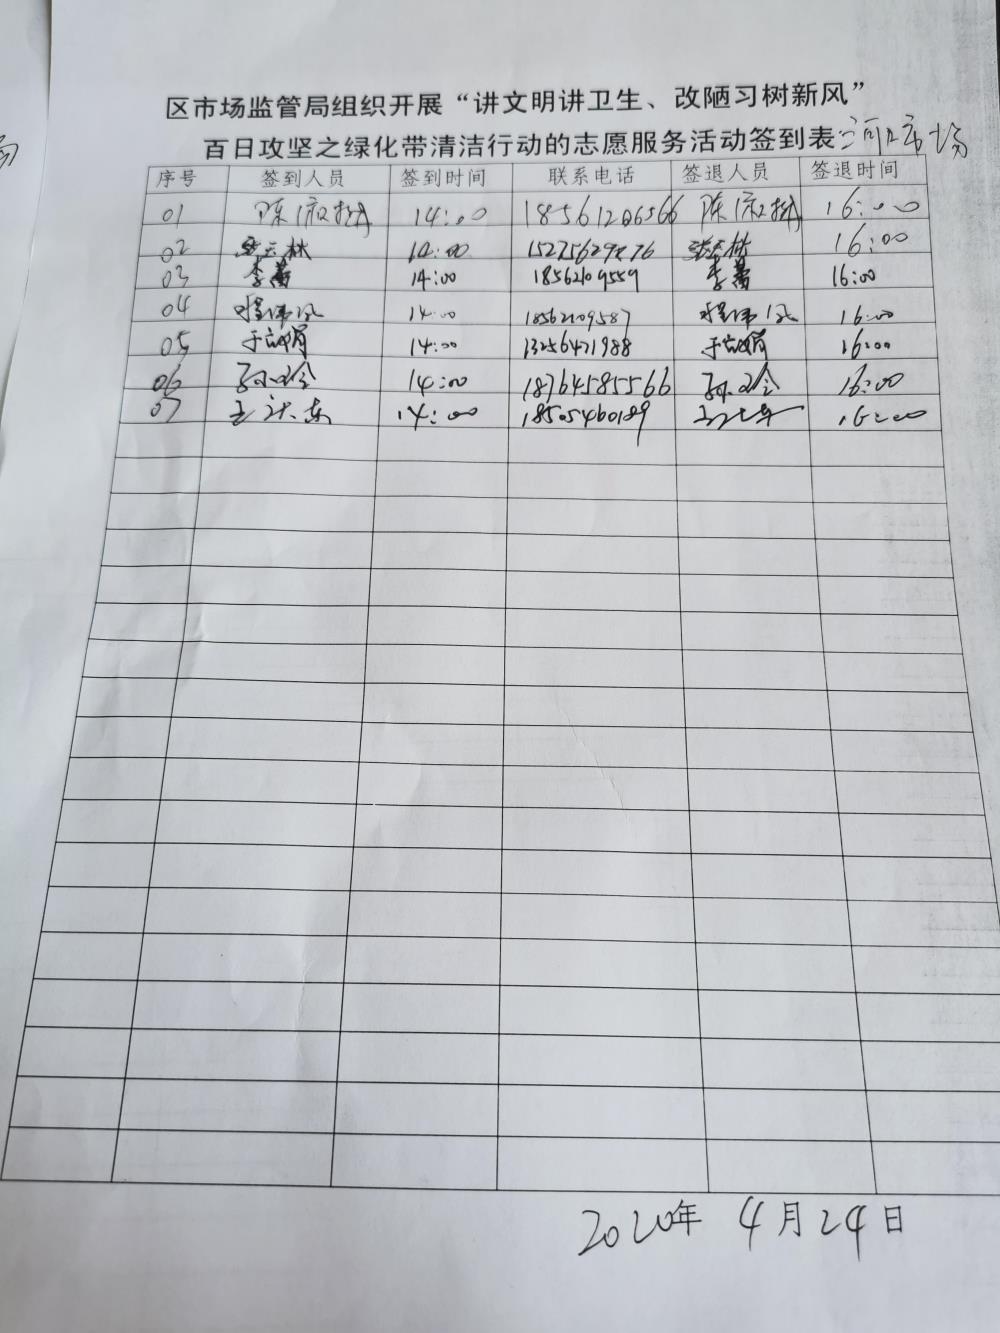 区市场监管局组织开展“讲文明讲卫生、改陋习树新风”
百日攻坚之绿化带清洁行动的志愿服务活动签到表
序号 签到人员 签到时间 联系电话 签退人员 签退时间
01 陈 14:00 18561206566 陈 16:00
02 林 14:00 林 16:00
03 李 14:00 18562109559 李 16:00
04 14:00 18562109587 16:00
05 于 14:00 13256471988 于 16:00
06 孙 14:00 18764585566 孙 16:00
07 王 东 14:00 18505460189 16:00
2020年 4月24日